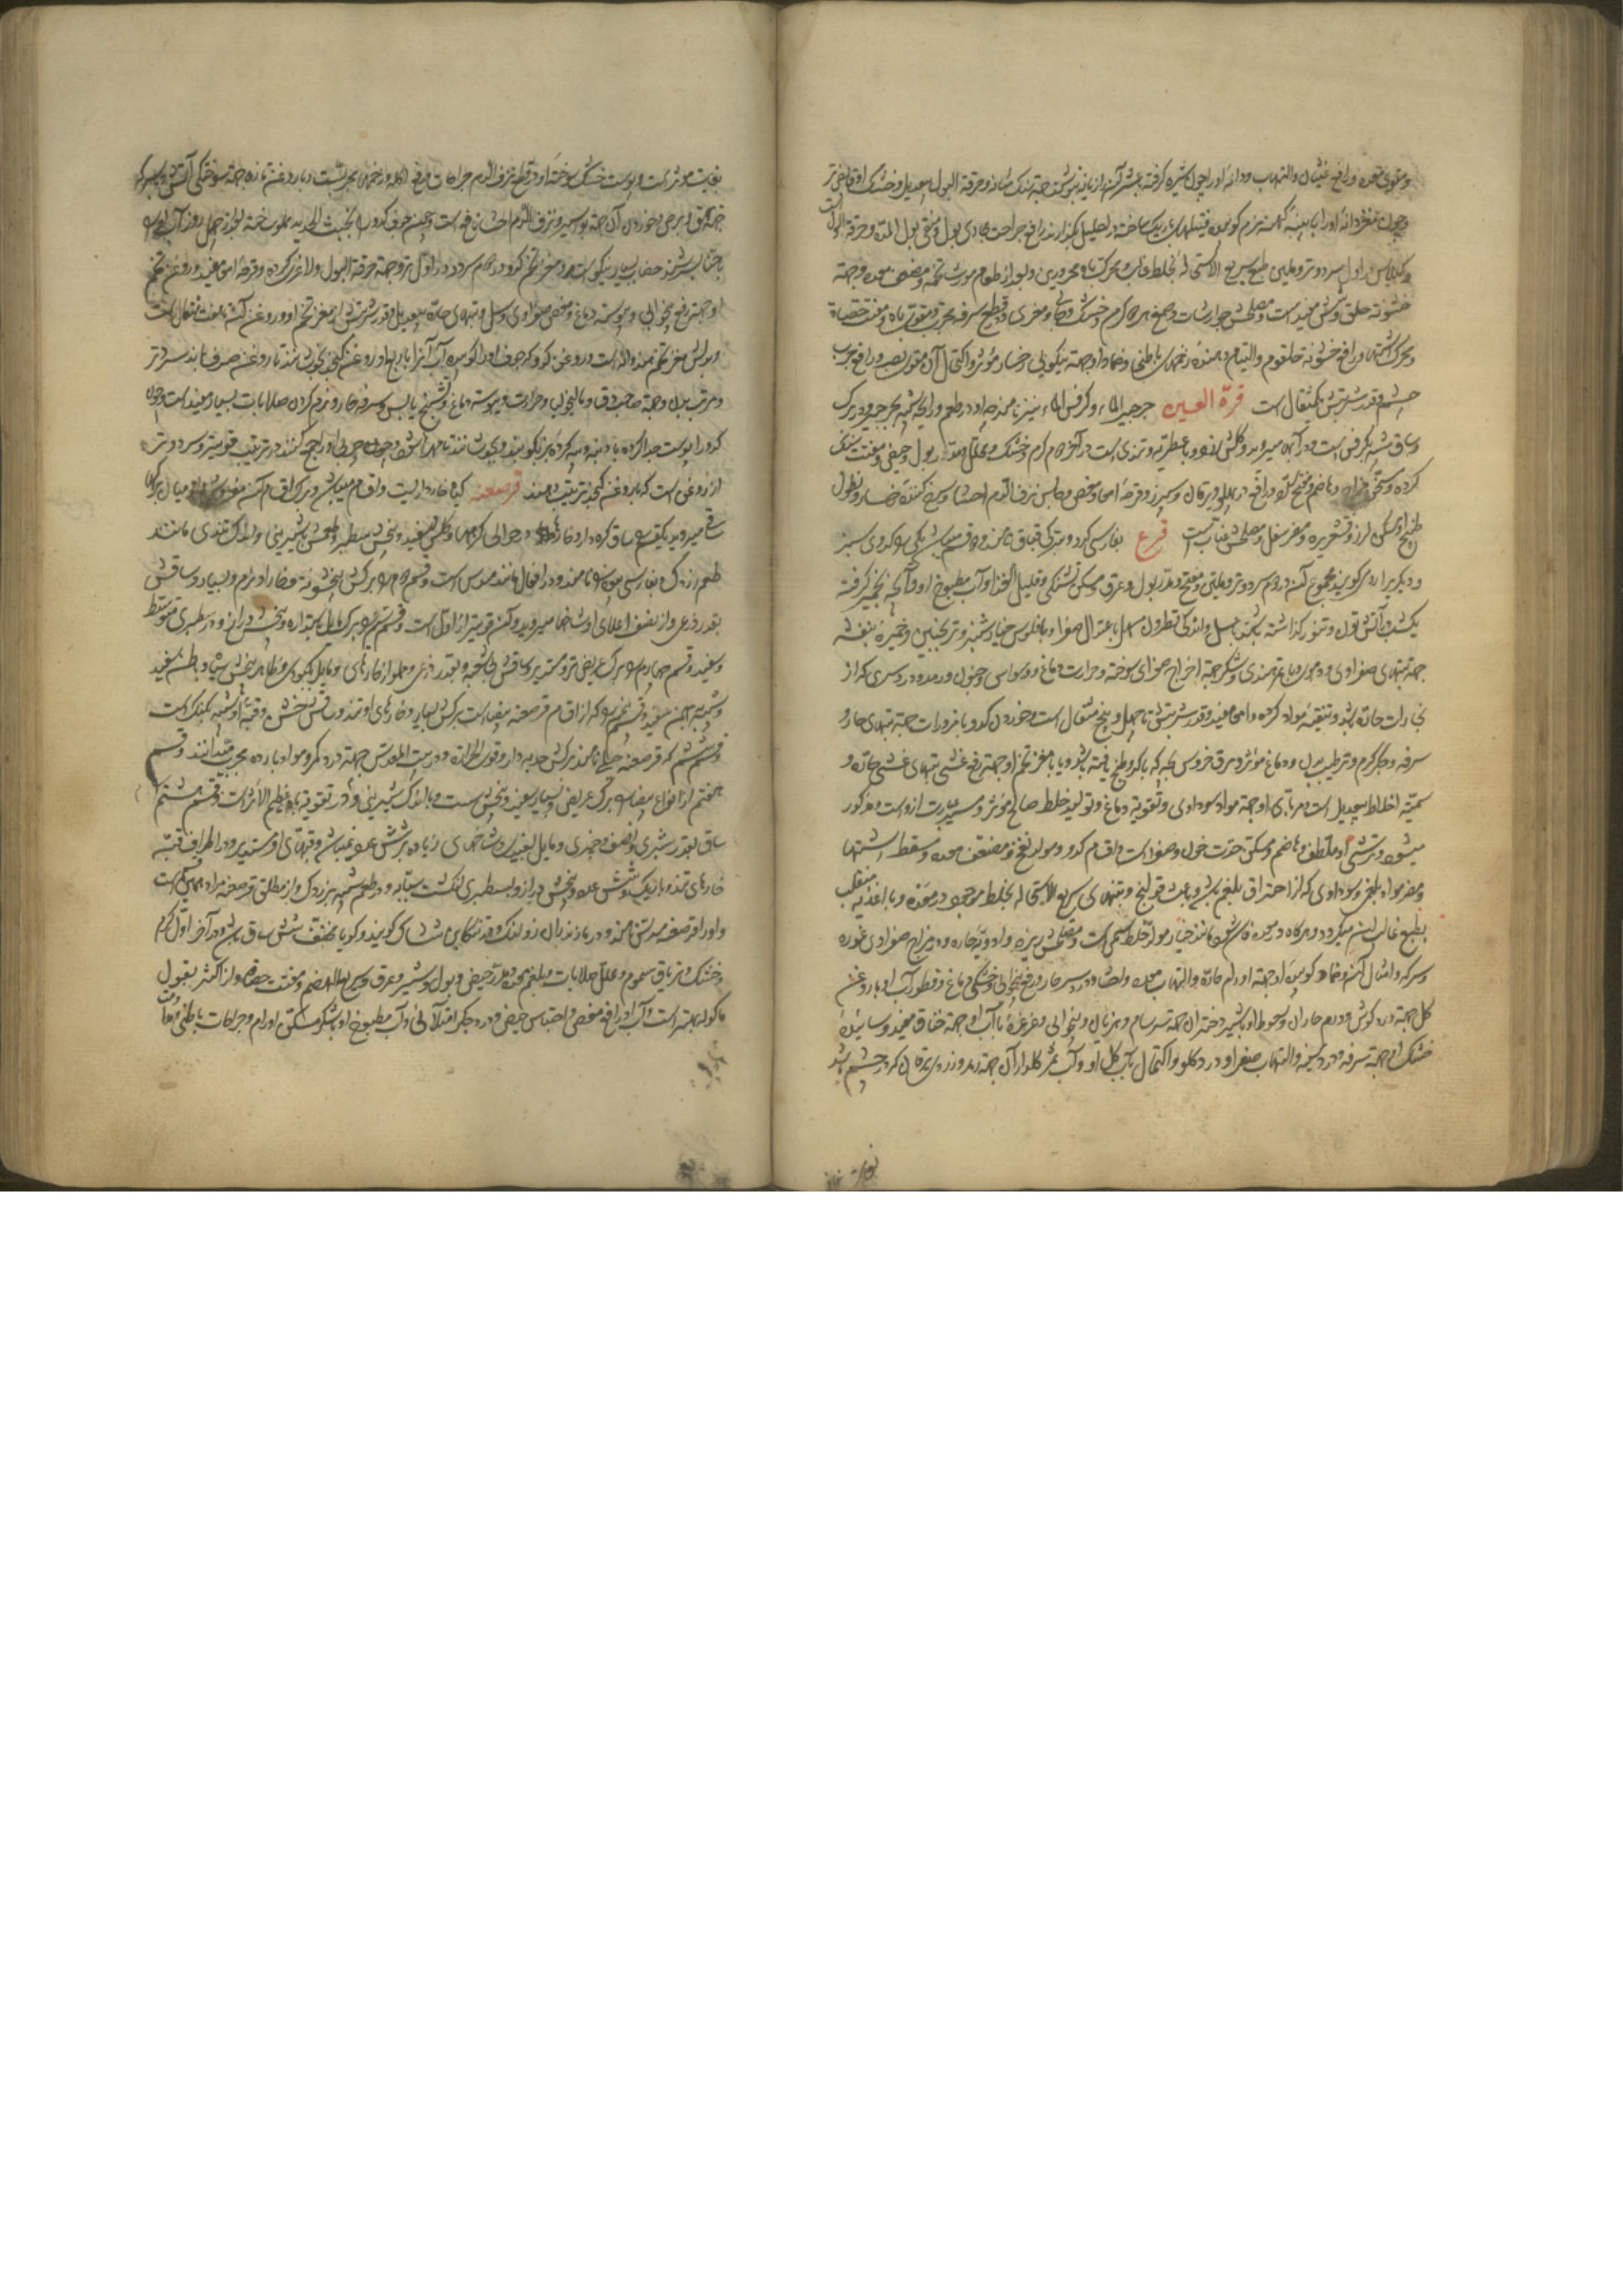 و مقوی معده و رافع غثیان و التهاب و دانه او را چون شیره گرفته
و چون مغز دانه او را با پنبه کهنه نرم کوبیده فتیله باریک ساخته در احلیل بگذارند رافع جراحت مجاری بول و منقی بول المده و حرقة البول است
و کیلاس در اول سرد و تر و ملین طبع سریع الاستحاله بخلط غالب و محرک باه محرورین و بعد از طعام مورث تخمه و مضعف معده و جهة
خشونة حلق و شش مفید است و مصلحش جوارشات و صمغ او گرم و خشک و مغری و قطع سرفه مجرب و مقوی باه و مفتت حصاة
و محرک اشتها و رافع خشونة حلقوم و التیام دهنده زخمهای باطنی و ضماد او جهة نیکویی رخسار مؤثر و اکتحال آن مقوی بصر و رافع جرب
چشم و قدر شربتش یکمثقال است قرة العین جرجیر الماء و کرفس الماء نیز نامند چه او در طعم و رایحه شبیه بجرجیر و در برک
و ساق شبیه بکرفس است و در آبها میروید و کلش سفید و با عطریه و تندی است در آخر دوم گرم و خشک و محلل و مدر بول و حیض و مفتت سنگ
کرده و مسخن مزاج و هاضم و مفتح سده و رافع درد پهلو و یرقان و سپرز و قرحه امعا و مغص و حابس نزف الدم احشا و سرخ کننده رخسار و نطول
طبیخ او مسکن لرز و قشعریره و مضر سفل و مصلحش عناب است قرع بفارسی کدو و بترکی قباق نامند و دو قسم میباشد یکی را کدوی سبز
و دیگریرا رومی گویند مجموع آن در دوم سرد و تر و ملین و مفتح و مدر بول و عرق و مسکن تشنگی و قلیل الغذا و آب مطبوخ او و آنچه بخمیر گرفته
یکشب در آتش تون و تنور گذاشته باشند با عسل و اندکی نطرون مسهل باعتدال صفرا و با فلوس خیارشنبر و ترنجبین و خمیره بنفشه
جهة تبهای صفراوی و دموی و با تمرهندی و شکر جهة اخراج صفرای سوخته و حرارت دماغ و وسواس و جنون و رمد و درد سری که از
بخارات حاره باشد و تنقیه مواد گرده و امعا مفید و قدر شربتش تا چهل و پنج مثقال است و خوردن کدو با مزورات جهة تبهای حار و
سرفه و جگر گرم و ترطیب بدن و دماغ مؤثر و مرق خروس بچه که با کدو طبخ یافته باشد و یا با مغز تخم او جهة رفع غشی تبهای غشی حاده و
سمیة اخلاط بیعدیل است و مربای او جهة مواد سوداوی و تقویة دماغ و تولید خلط صالح مؤثر و مسیر بارت ازوست و مذکور
میشود و ترشی او ملطف و هاضم و مسکن حدت خون و صفرا است و اقسام کدو مولد نفخ و مضعف معده و مسقط اشتها
و مضر مواد بلغمی و سوداوی که از احتراق بلغم باشد و باعث قولنج و تنهای سریع الاستحاله بخلط موجود در معده و با اغذیه منقلب
بطبع غالب ایشان میگردد و هرگاه در معده فاسد شود مانند خیار مولد خلط سمی است و مصلحش زیره و ادویه حاره و در مزاج صفراوی غوره
و سرکه و امثال آن و ضماد کوبیده او جهة اورام حاره و التهاب معده و احشا و درد سر حار و رفع بیخوابی و خشکی دماغ و قطور آب او با روغن
کل جهة درد گوش و ورم حار آن و سعوط او با شیر دختران جهة سرسام و هذیان و بیخوابی و غرغره با آب او جهة خناق مفید و ساییده
خشک او جهة سرفه و درد سینه و التهاب صفرا و درد گلو و اکتحال بآب گل او و آب ثمر گلدار آن جهة رمد و زردی یرقان که در چشم باشد
بغایت مؤثر است و پوست خشک سوخته او در قطع نزف الدم جراحات و رفع آکله و زخمهای مجرب است و با روغن تازه جهة سوختگی آتش و با سرکه
جهة بهق و برص و خوردن آن جهة بواسیر و نزف الدم احشا نافع است و چون جوف کدو را بخبث الحدید مملو ساخته بعد از چهل روز آب او را
با حنا بسرشند خضاب بسیار نیکو است و مغز تخم کدو در دوم سرد و در اول تر و جهة حرقة البول و لاغری گرده و قرحه امعا مفید و روغن تخم
او جهة رفع بیخوابی و یبوست دماغ و مغص صفراوی و سل و تبهای حاره بیعدیل و قدر شربتش از مغز تخم او و روغن آن تا هفت مثقال است
و بدلش مغز تخم هندوانه است و روغن کدو که جرم او را کوبیده آب آنرا با ربع او روغن کنجد بجوشانند تا روغن صرف بماند سرد و تر
و مرطب بدن و جهة صاحب دق و مالیخولیا و حرارت و یبوست دماغ و تشنج یابس و سرفه حار و نرم کردن صلابات بسیار مفید است و چون
کدو را پوست جدا کرده با دنبه و پیه گرده بز بکوبند و بجوشانند تا مهرا شود و چون چربی او را جمع کنند در ترطیب قویتر و سرد و تر
از روغنی است که با روغن کنجد ترتیب دهند قرصعنه گیاه خارداریست و اقسام میباشد و برگ اقسام آن مفروش بر زمین و از میان برگها
ساقی میروید یکقسم را ساق گره دار و خارها در حوالی گرهها و گلش سفید و بیخش سطبر و طعمش با شیرینی و اندک تندی مانند
طعم زردک و بفارسی موسوم نامند و در افعال مانند سوس است و قسم دوم را برگش بخشونة و خار او نرم و بسیار و ساقش
بقدر ذرعی و از نصف اعلای او شاخها میروید و آن قویتر از اول است و قسم سیم را برگ مایل باستداره و بیخش دراز و در سطبری متوسط
و سفید و قسم چهارم را برگ عریض تر و مستدیر و ساقش بی شعبه و بقدر ذرعی و مملو از خارهای و مایل بکبودی و ظاهر بیخش سیاه و باطن سفید
و شبیه ببهمن سفید و قسم پنجم را که از اقسام قرصعنه بیضا است برگش بسیار و خارهای او تند و ساقش خشن و قبه او شبیه بکنگر است
و قسم ششم که قرصعنه جبلی نامند برگش جعد و دار و قوی الحراره و در بیت المقدس جهة درد کمر و مواد بارده مجرب میدانند و قسم
هفتم از انواع بیضا را برگ عریض و بسیار سفید و بیخش سست و با اندک شیرینی و در تقویة باه عظیم الاثر است و قسم هشتم
ساق بقدر شبری و نصف و چیزی و مایل بسفیدی و شاخهای زیاده بر شش عدد نمیباشد و قبهای او مستدیر و در اطراف قبه
خارهای تند و باریک و شش عدد و بیخش دراز و بسطبری انگشت سبابه و در طعم شبیه بزردک و از مطلق قرصعنه مراد همین است
و او را قرصعنه میدانند و در مازندران زولنگ و در تنکابن شش تاک گویند و گویا مخفف شش ساق باشد و در آخر اول گرم
و خشک و تریاق سموم و محلل صلابات و بلغم معده و مدر حیض و بول و شیر و عرق و سریع الهضم و مفتت حصاة و از اکثر بقول
ماکوله بهتر است و آب او رافع مغص و احتباس حیض و درد جگر امتلائی و آب مطبوخ او با شکر مسکن اورام و جراحات باطنی و معا